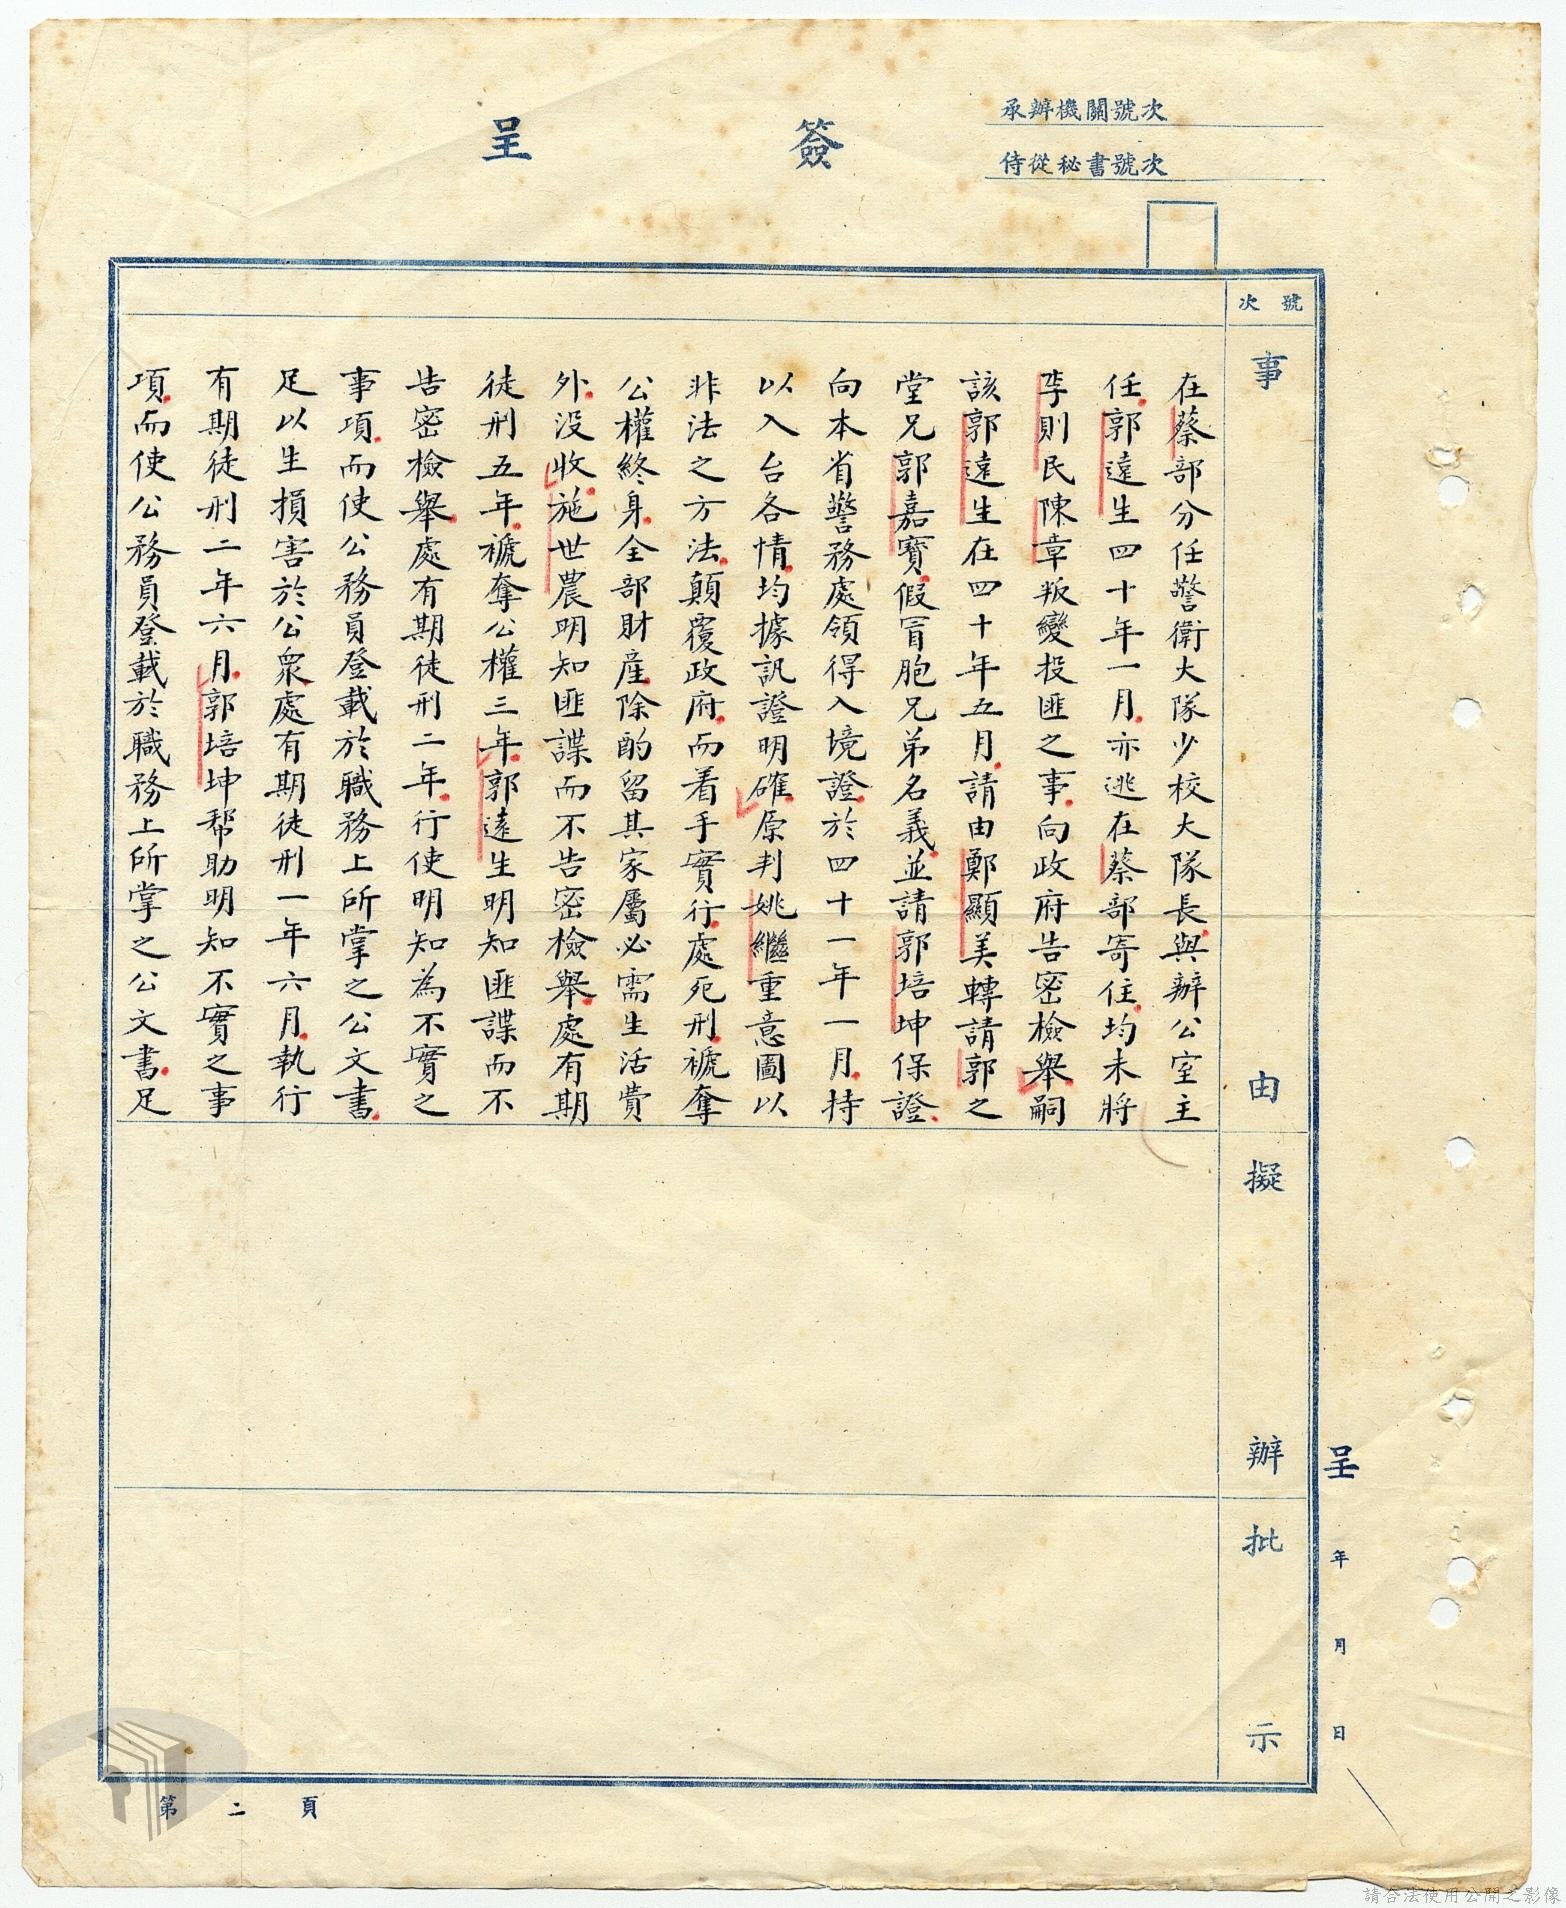 簽呈
承辦機關號次
侍從秘書號次
號次
事由
擬辦
批示
呈
年月日
在蔡部分任警衛大隊少校大隊長與辦公室主
任郭遠生四十年一月亦逃在蔡部寄住均未將
李則民陳章叛變投匪之事向政府告密檢舉嗣
該郭遠生在四十年五月請由鄭顯美轉請郭之
堂兄郭嘉寶假冒胞兄弟名義並請郭培坤保證
向本省警務處領得入境證於四十一年一月持
以入台各情均據訊證明確原判姚繼重意圖以
非法之方法顛覆政府而着手實行處死刑褫奪
公權終身全部財產除酌留其家屬必需生活費
外沒收施世農明知匪諜而不告密檢舉處有期
徒刑五年褫奪公權三年郭遠生明知匪諜而不
告密檢舉處有期徒刑二年行使明知為不實之
事項而使公務員登載於職務上所掌之公文書
足以生損害於公眾處有期徒刑一年六月執行
有期徒刑二年六月郭培坤帮助明知不實之事
項而使公務員登載於職務上所掌之公文書足
第二頁
請合法使用公開之影像